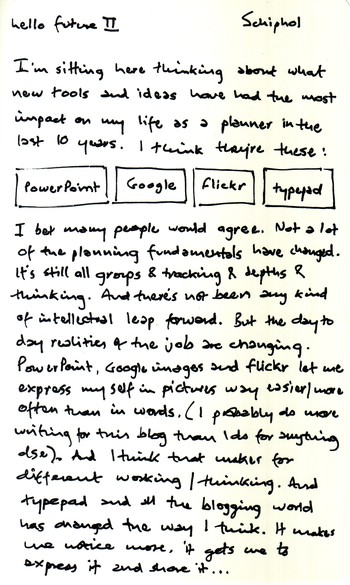 hello future II Schiphol
I'm sitting here thinking about what
new tools and ideas have had the most
impact on my life as a planner in the
last 10 years. I think they're these:
PowerPoint Google flickr typepad
I bet many people would agree. Not a lot
of the planning fundamentals have changed.
It's still all groups & tracking & depths &
thinking. And there's not been any kind
of intellectual leap forward. But the day to
day realities of the job are changing.
PowerPoint, Google images and flickr let me
express my self in pictures way easier/more
often than in words. (I probably do more
writing for this blog than I do for anything
else). And I think that makes for
different working/thinking. And
typepad and all the blogging world
has changed the way I think. It makes
me notice more, it gets me to
express it and share it...